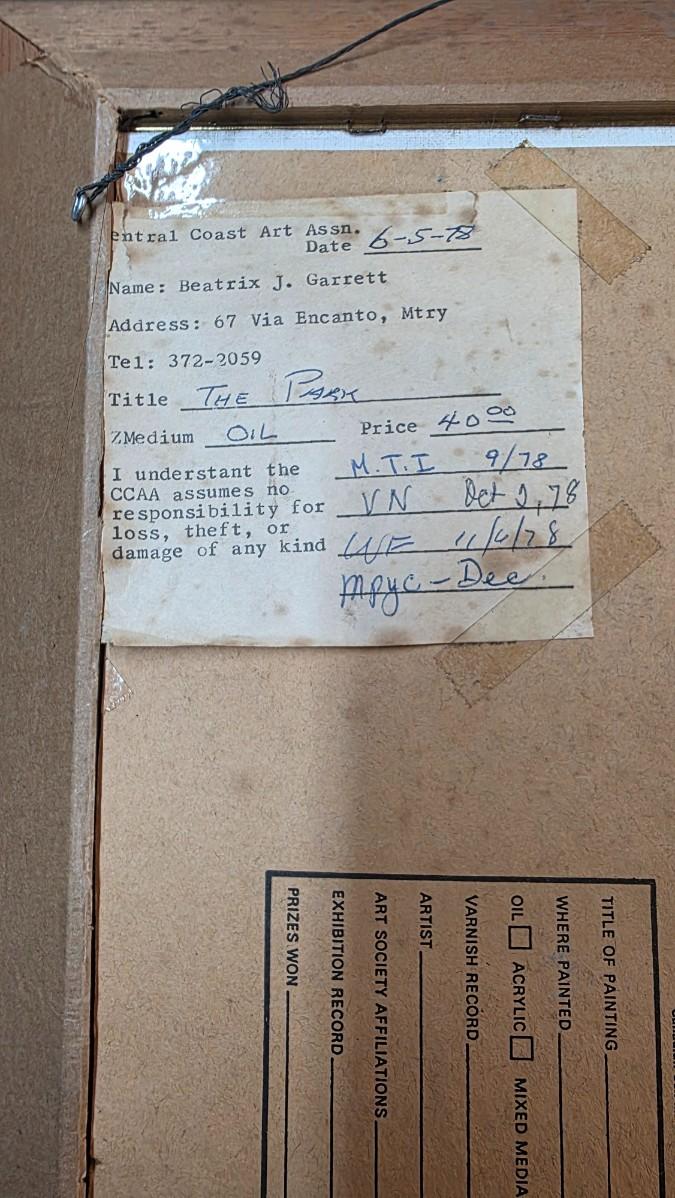 entral Coast Art Assn.
Date 6-5-78
Name: Beatrix J. Garrett
Address: 67 Via Encanto, Mtry
Tel: 372-2059
Title THE PARK
ZMedium OIL Price 40.00
I understant the
CCAA assumes no
responsibility for
loss, theft, or
damage of any kind
M.T.I 9/78
VN Oct 2, 78
WF 11/4/78
mpyc - Dec.
TITLE OF PAINTING
WHERE PAINTED
OIL ACRYLIC MIXED MEDIA
VARNISH RECORD
ARTIST
ART SOCIETY AFFILIATIONS
EXHIBITION RECORD
PRIZES WON